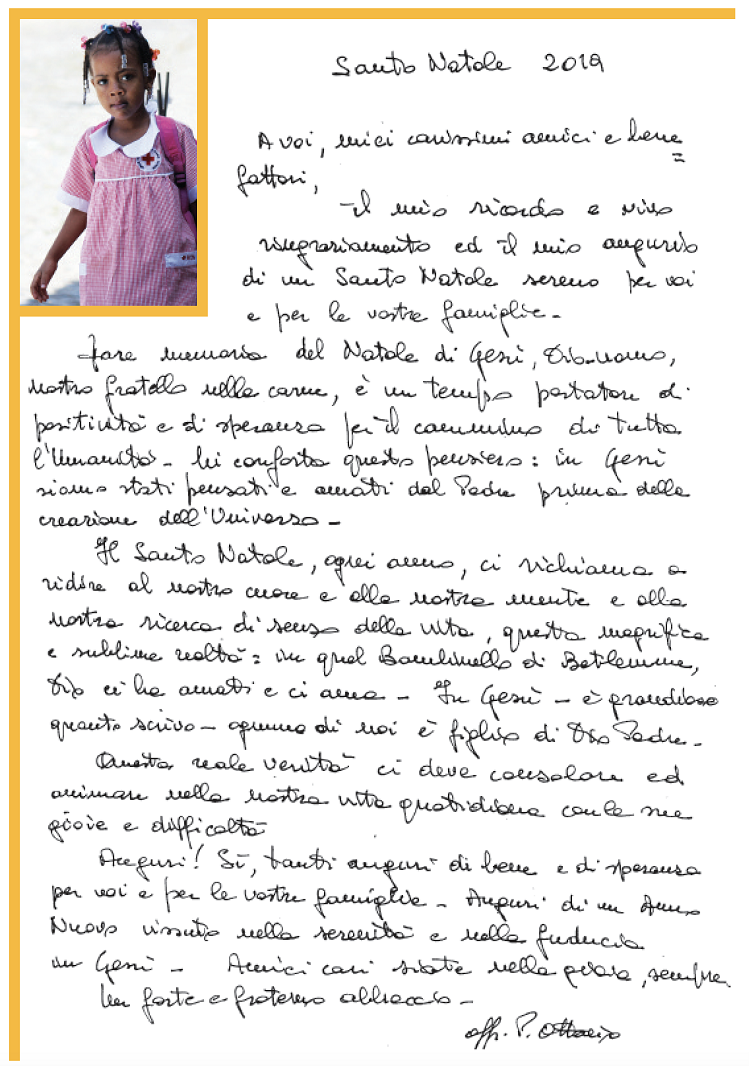 Santo Natale 2019
A voi, miei carissimi amici e bene=
fattori,
Il mio ricordo e vivo
ringraziamento ed il mio augurio
di un Santo Natale sereno per voi
e per le vostre famiglie.
Fare memoria del Natale di Gesù, Dio-uomo,
nostro fratello nella carne, è un tempo portatore di
positività e di speranza per il cammino di tutta
l'Umanità. Mi conforta questo pensiero: in Gesù
siamo stati pensati e amati dal Padre prima della
creazione dell'Universo.
Il Santo Natale, ogni anno, ci richiama a
ridire al nostro cuore e alla nostra mente e alla
nostra ricerca di senso della vita, questa magnifica
e sublime realtà: in quel Bambinello di Betlemme,
Dio ci ha amati e ci ama. In Gesù - è grandioso
quanto scrivo - ognuno di noi è figlio di Dio Padre.
Questa reale verità ci deve consolare ed
animare nella nostra vita quotidiana con le sue
gioie e difficoltà
Auguri! Sì, tanti auguri di bene e di speranza
per voi e per le vostre famiglie. Auguri di un Anno
Nuovo vissuto nella serenità e nella fiducia
in Gesù. Amici cari siate nella gioia, sempre.
Un forte e fraterno abbraccio.
aff. P. Ottavio